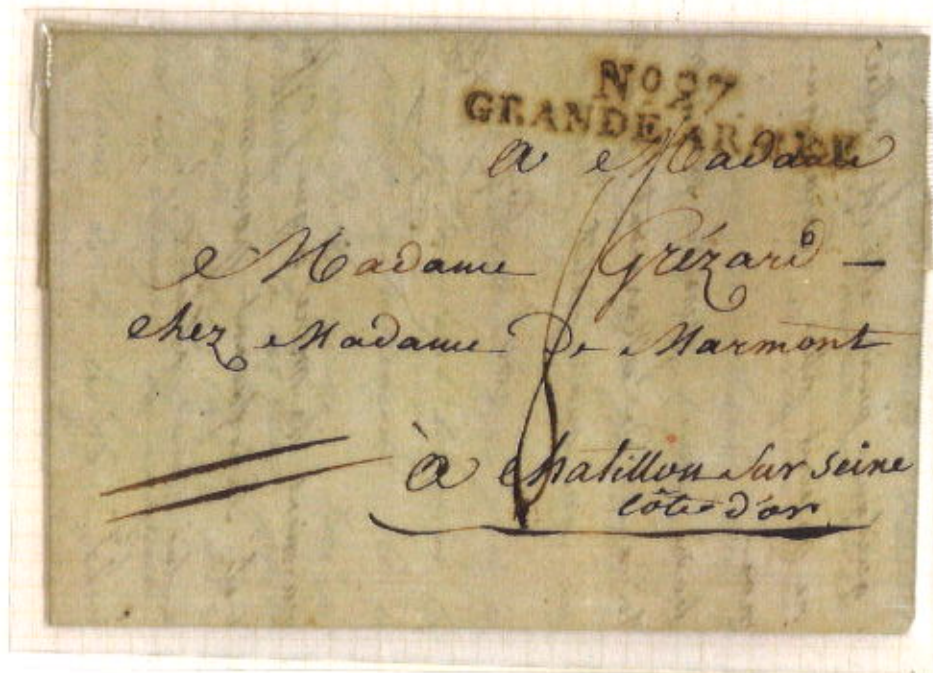 No 27
GRANDE ARMÉE
a Madame
Madame Grézard
chez Madame De Marmont
à Chatillon sur seine
côte d'or